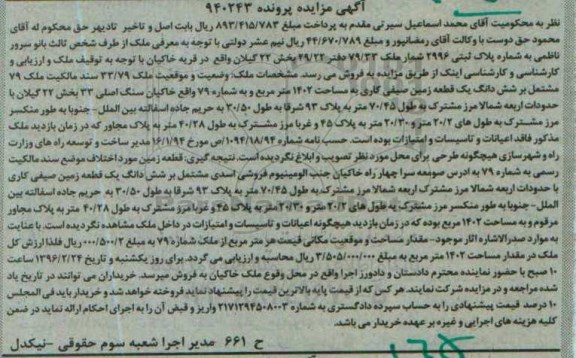 آگهی مزایده پرونده ۹۴۰۲۴۳
نظر به محکومیت آقای محمد اسماعیل سیرتی مقدم به پرداخت مبلغ ۸۹۳/۴۱۵/۷۸۳ ریال بابت اصل و تاخیر تادیهر حق محکوم له آقای
محمود حق دوست با وکالت آقای رمضانپور و مبلغ ۴۴/۶۷۰/۷۸۹ ریال نیم عشر دولتی با توجه به معرفی ملک از طرف شخص ثالث بانو سرور
ناظمی به شماره پلاک ثبتی ۲۹۹۶ شمار ملک ۷۹/۳۳ دفتر ۴۹/۲۲ بخش ۲۲ گیلان واقع در قریه خاکیان با توجه به توقیف ملک و ارزیابی و
کارشناسی و کارشناسی اینک از طریق مزایده به فروش می رسد. مشخصات ملک: وضعیت و موقعیت ملک ۳۳/۷۹ سند مالکیت ملک ۷۹
مشتمل بر شش دانگ یک قطعه زمین صیفی کاری به مساحت ۱۴۰۲ متر مربع و به شماره ۷۹ واقع خاکیان سنگ اصلی ۳۳ بخش ۲۲ گیلان با
حدودات اربعه شمالا مرز مشترک به طول ۷۰/۴۵ متر به پلاک ۹۳ شرقا به طول ۳۰/۵۰ به حریم جاده اسفالته بین الملل- جنوبا به طور منکسر
مرز مشترک به طول های ۲۰/۲ متر و ۲۰/۳۰ متر به پلاک ۴۵ و غربا مرز مشترک به طول ۴۰/۲۸ متر به پلاک مجاور که در زمان بازدید ملک
مذکور فاقد اعیانات و تاسیسات و امتیازات بوده است. حسب نامه شماره ۱۰۹۴/۱۸/۹۴/ص مورخ ۱۶/۱/۹۴ مدیر ساخت و توسعه راه های وزارت
راه و شهرسازی هیچگونه طرحی برای محل مورد نظر تصویب و ابلاغ نگردیده است. نتیجه گیری: قطعه زمین مورد اختلاف موضع سند مالکیت
رسمی به شماره ۷۹ به ادرس صومعه سرا چهار راه خاکیان جنب الومینیوم فروشی اسدی مشتمل بر شش دانگ یک قطعه زمین صیفی کاری
با حدودات اربعه شمالا مرز مشترک اربعه شمالا مرز مشترک به طول ۷۰/۴۵ متر به پلاک ۹۳ شرقا به طول ۳۰/۵۰ به حریم جاده اسفالته بین
الملل- جنوبا به طور منکسر مرز مشترک به طول های ۲۰/۲ متر و ۲۰/۳۰ متر به پلاک ۴۵ و غربا مرز مشترک به طول ۴۰/۲۸ متر به پلاک مجاور
مرقوم و به مساحت ۱۴۰۲ مربع بوده که در زمان بازدید هیچگونه اعیانات و تاسیسات و امتیازات در داخل ملک مشاهده نگردیده است. با عنایت
به موارد صدرالاشاره اثار موجود- مقدار مساحت و موقعیت مکانی قیمت هر متر مربع از ملک شماره ۷۹ به مبلغ ۰۰۰/۵۰۰/۲ ریال فلذا ارزش کل
ملک در مقدار مساحت ۱۴۰۲ متر مربع به مبلغ ۳/۵۰۵/۰۰۰/۰۰۰ ریال محاسبه و ارزیابی می گردد. برای روز یکشنبه و تاریخ ۱۳۹۶/۲/۲۴ ساعت
۱۰ صبح با حضور نماینده محترم دادستان و دادورز اجرا واقع در محل وقوع ملک خاکیان به فروش میرسد. خریداران می توانند در تاریخ یاد
شده مراجعه و در مزایده شرکت نمایند. هر کس که از قیمت پایه بالاترین قیمت را پیشنهاد نماید فروخته خواهد شد و خریدار باید فی المجلس
۱۰ درصد قیمت پیشنهادی را به حساب سپرده دادگستری به شماره ۲۱۷۱۲۹۴۵۰۸۰۰۳ واریز و قبض آن را به اجرای احکام ارائه نماید در ضمن
کلیه هزینه های اجرایی و غیره بر عهده خریدار می باشد.
ح ۶۶۱ مدیر اجرا شعبه سوم حقوقی -نیکدل